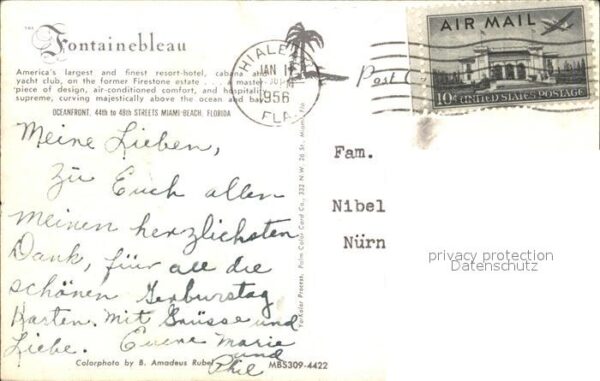 THE
Fontainebleau
America's largest and finest resort-hotel, cabana and
yacht club, on the former Firestone estate . . . a master-
piece of design, air-conditioned comfort, and hospitality
supreme, curving majestically above the ocean and bay.
OCEANFRONT, 44th to 48th STREETS MIAMI BEACH, FLORIDA
Meine Lieben,
Zu Euch allen
meinen herzlichsten
Dank, für all die
schönen Geburstag
Karten. Mit Grüsse und
Liebe. Euere Marie
und
Phil
Colorphoto by B. Amadeus Rubel
MBS309-4422
Process. Palm Color Card Co., 332 N.W. 26 St., Miami, Fla.
HIALEAH
JAN 1
PM
1956
FLA.
Post Card
AIR MAIL
10¢ UNITED STATES POSTAGE
Fam.
Nibel
Nürn
privacy protection
Datenschutz